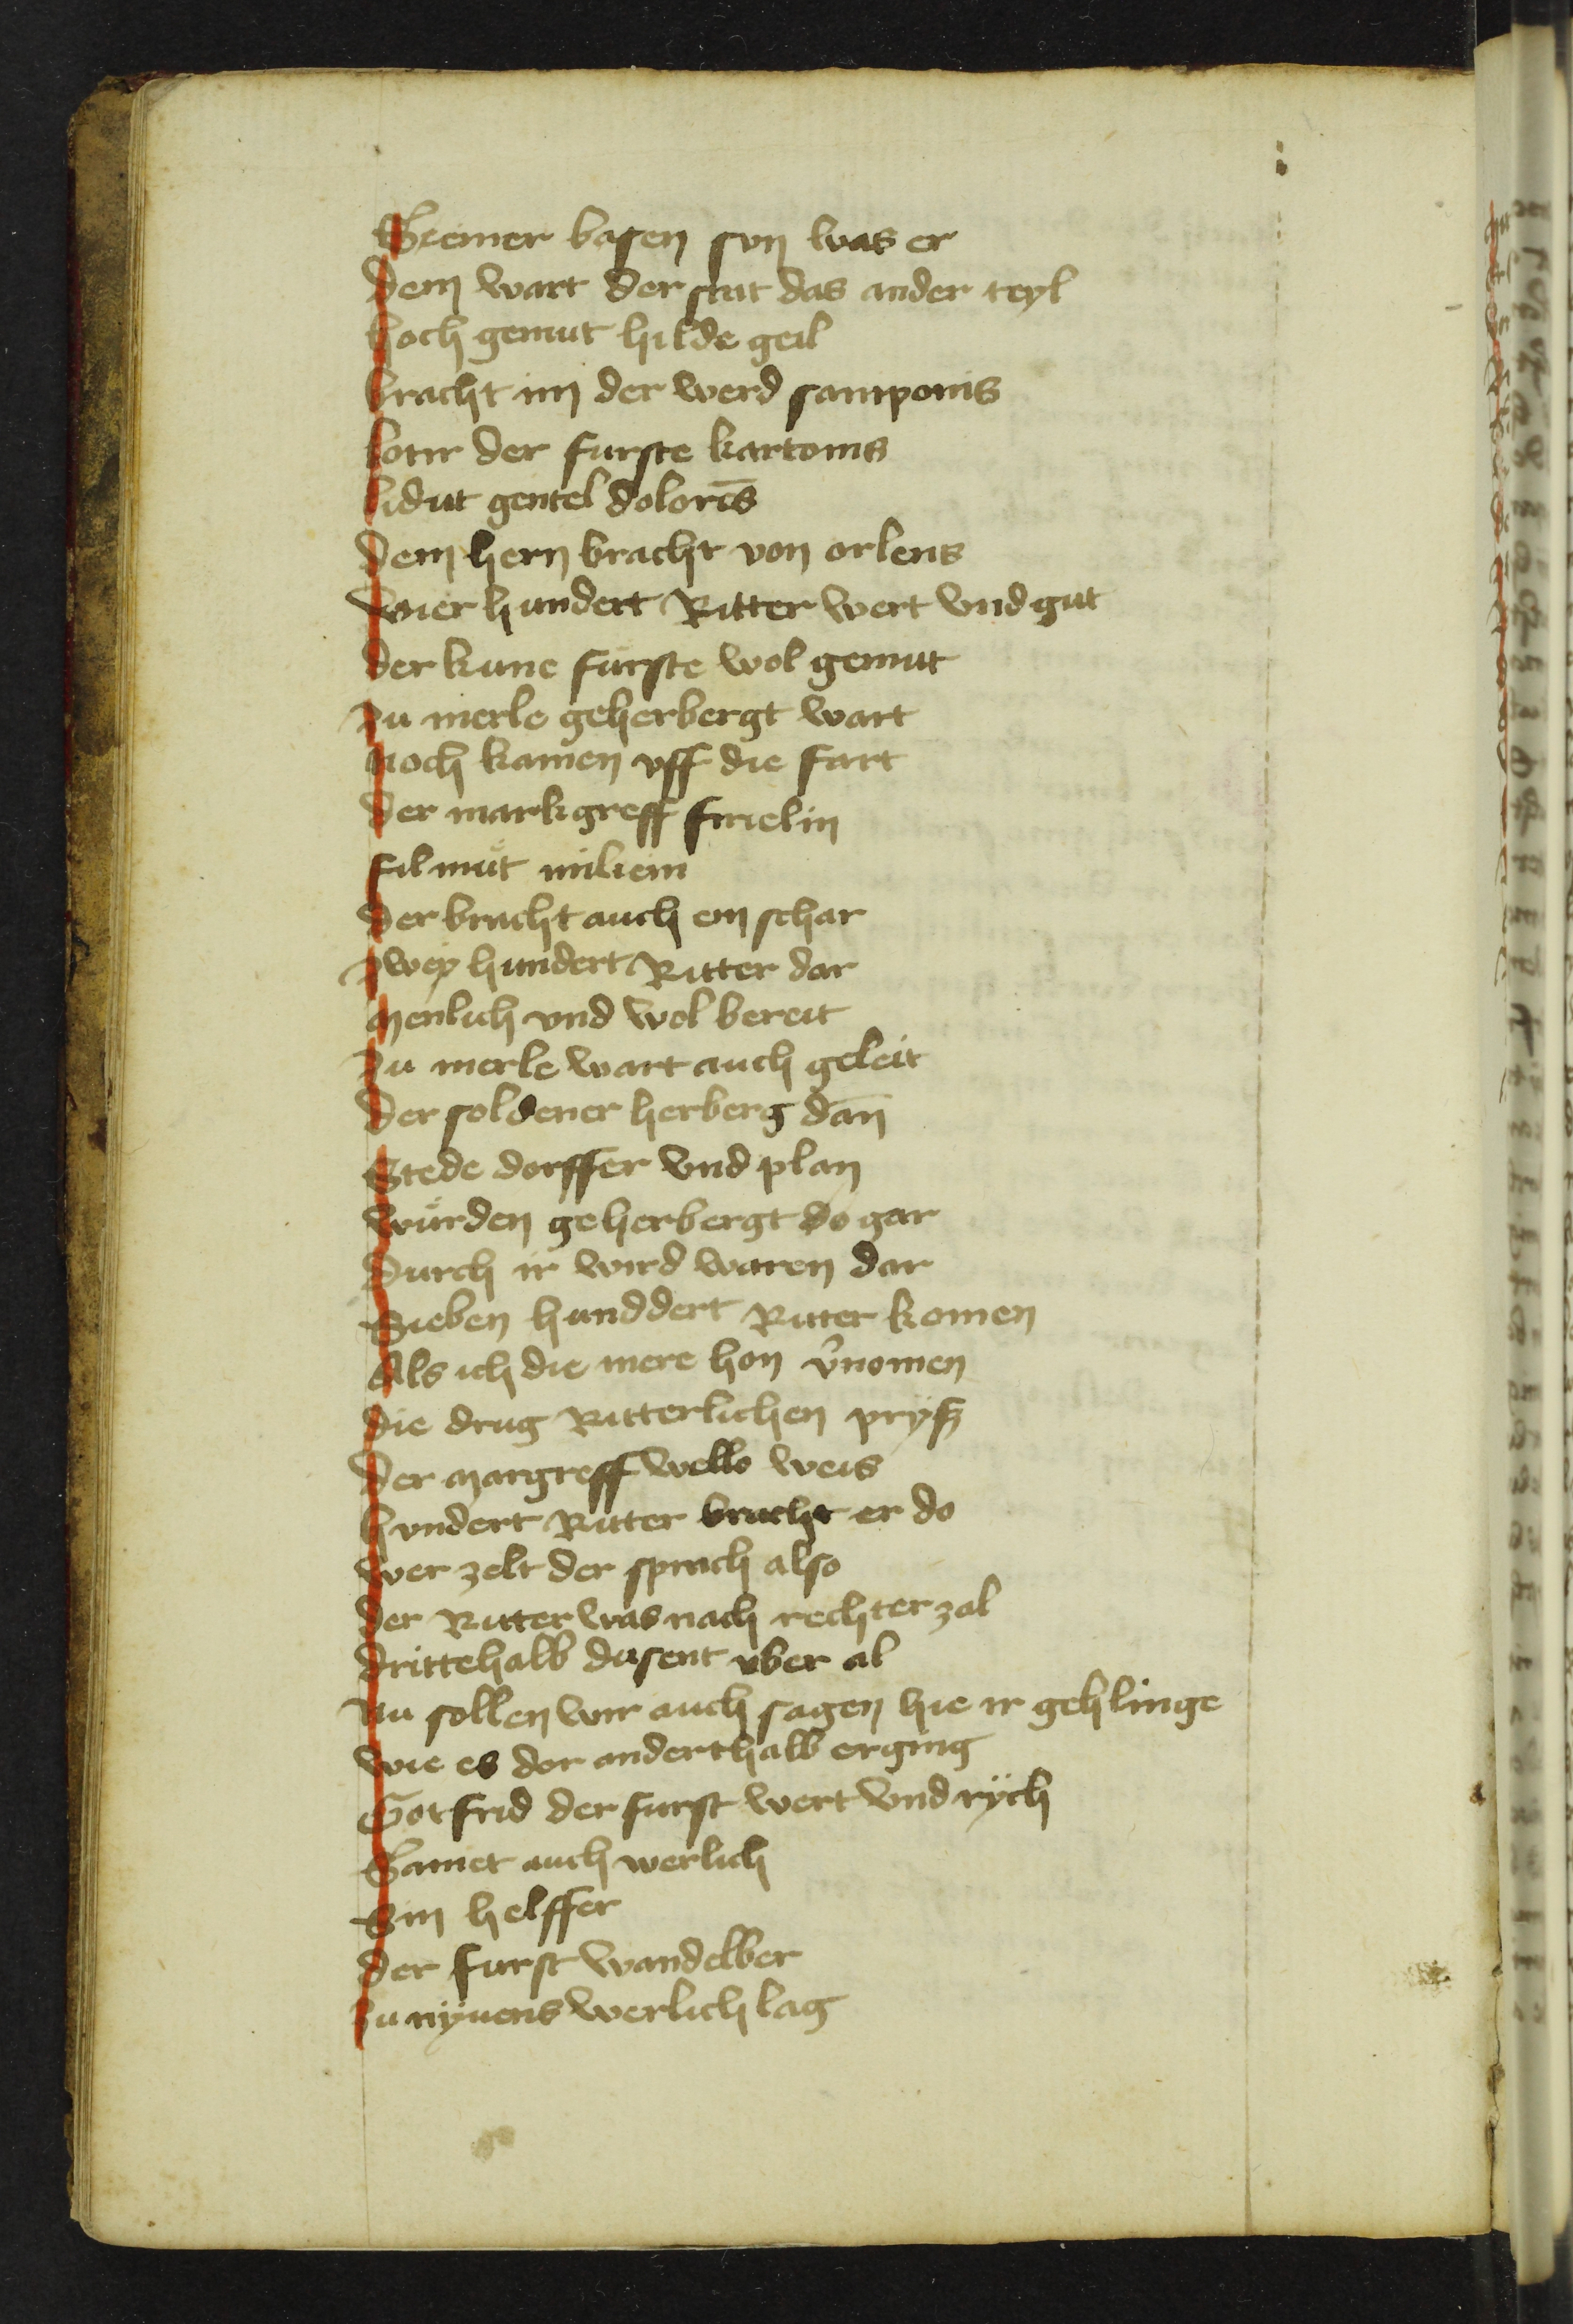 Sremer basen sun was er
dem wart der stat das ander teyl
hoch gemut hilde geil
bracht im der werd samponis
lotir der furste kartonis
lidut gentel doloris
dem hern bracht von orlens
vier hundert Ritter wert vnd gut
der kune furste wol gemut
zu merle geherbergt wart
noch kamen vff die fart
der markgreff
filmut miliem
der bracht auch ein schar
zwey hundert Ritter dar
menlich vnd wol bereit
zu merle wart auch geleit
der soldener herberg dan̄
Stede dorffer vnd plan
wurden geherbergt do gar
durch ir wird waren dar
Sieben hunddert Ritter komen
Als ich die mere hon v̉nomen
die drug Ritterlichen pryß
der margreff wello weis
hvndert Ritter bracht er do
wer zelt der sprach also
der Ritter was nach rechter zal
drittehalb dusent vber al
Nu sollen wir auch sagen hie ir gehlinge
wie es der anderthalb erging
Gotfrid der furst wert vnd rÿch
Samet auch werlich
Sin helffer
der furst wandelber
zu nyuens werlich lag